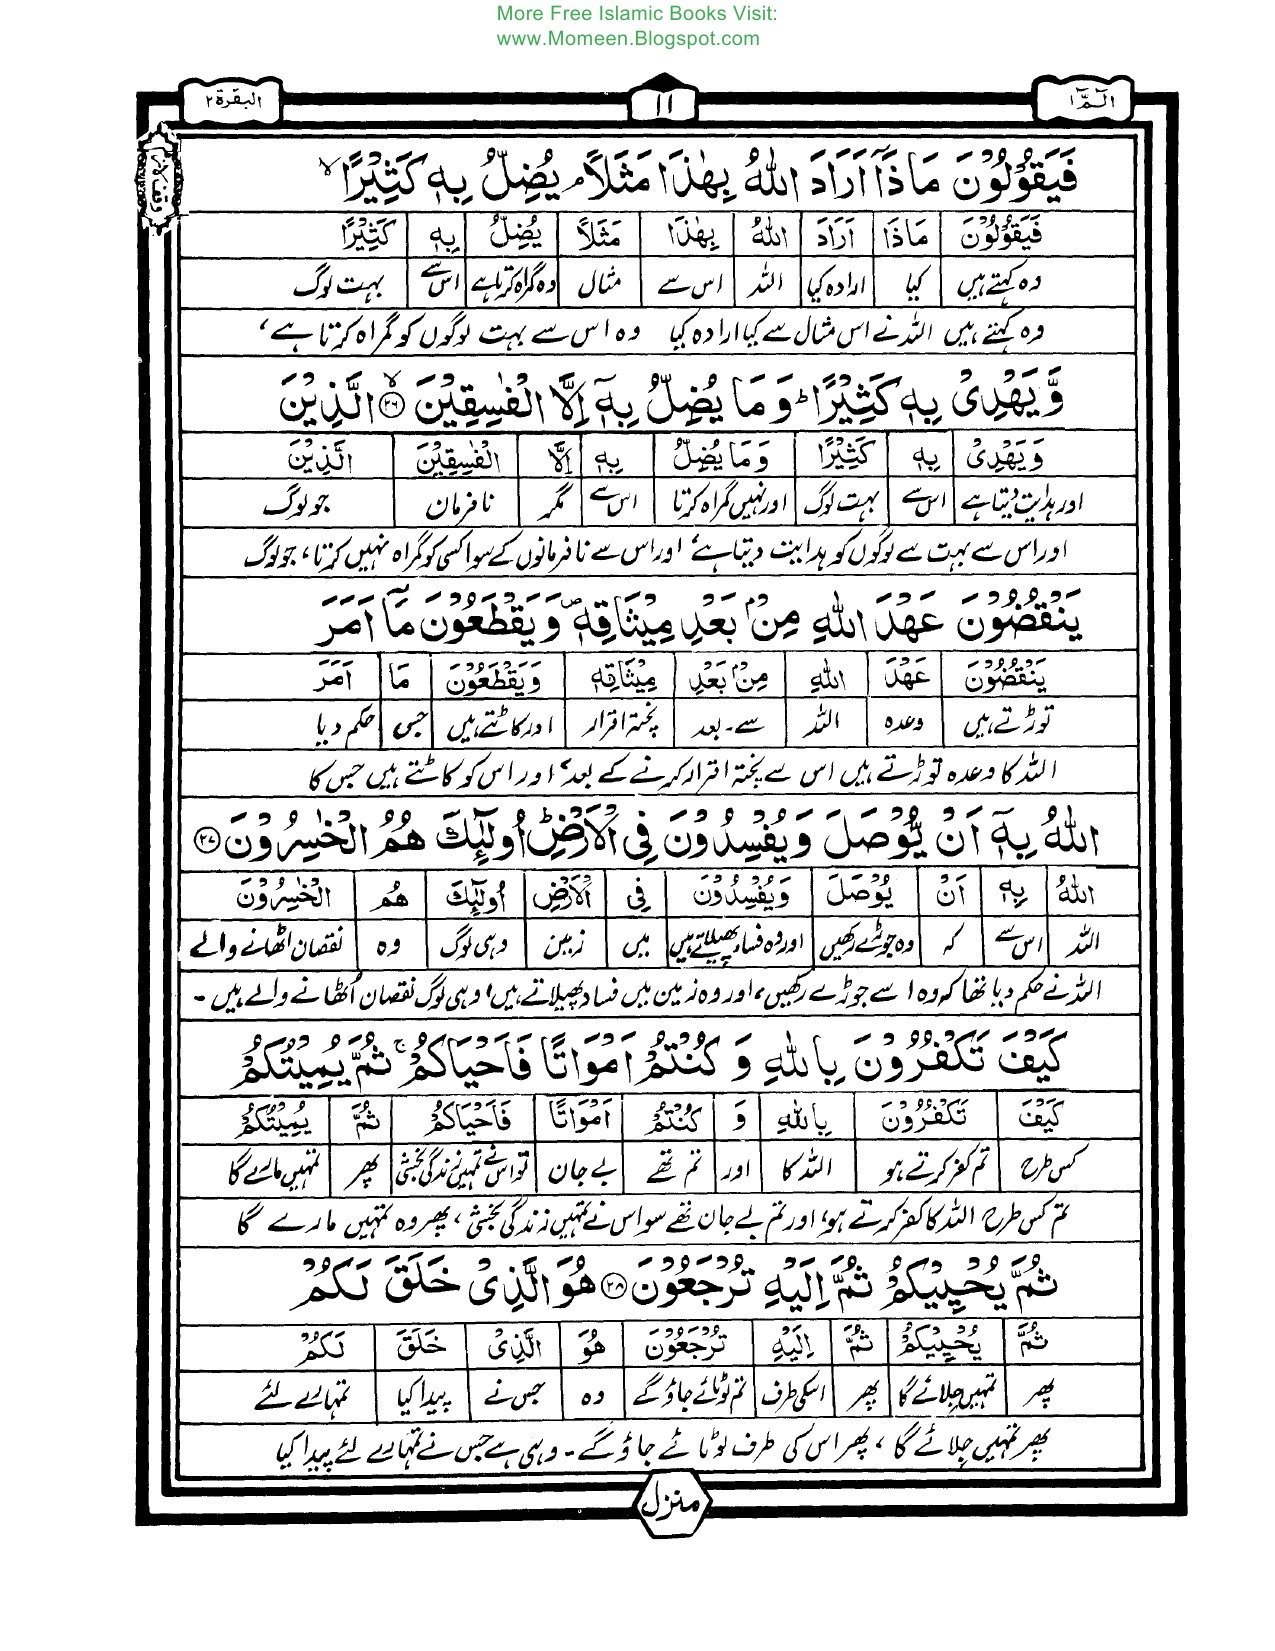 More Free Islamic Books Visit:
www.Momeen.Blogspot.com
الٓمّٓ ١ ١١ البقرة ٢
فَيَقُوْلُوْنَ مَاذَآ اَرَادَ اللّٰهُ بِهٰذَا مَثَلًا ۘ يُضِلُّ بِهٖ كَثِيْرًا ۙ
فَيَقُوْلُوْنَ مَاذَا اَرَادَ اللّٰهُ بِهٰذَا مَثَلًا يُضِلُّ بِهٖ كَثِيْرًا
وہ کہتے ہیں کیا ارادہ کیا اللہ اس سے مثال وہ گمراہ کرتا ہے اس سے بہت لوگ
وہ کہتے ہیں اللہ نے اس مثال سے کیا ارادہ کیا وہ اس سے بہت لوگوں کو گمراہ کرتا ہے،
وَّيَهْدِىْ بِهٖ كَثِيْرًا ؕ وَمَا يُضِلُّ بِهٖٓ اِلَّا الْفٰسِقِيْنَ ۙ ﴿٢٦﴾ الَّذِيْنَ
وَيَهْدِىْ بِهٖ كَثِيْرًا وَمَا يُضِلُّ بِهٖ اِلَّا الْفٰسِقِيْنَ الَّذِيْنَ
اور ہدایت دیتا ہے اس سے بہت لوگ اور نہیں گمراہ کرتا اس سے مگر نافرمان جو لوگ
اور اس سے بہت سے لوگوں کو ہدایت دیتا ہے، اور اس سے نافرمانوں کے سوا کسی کو گمراہ نہیں کرتا، جو لوگ
يَنْقُضُوْنَ عَهْدَ اللّٰهِ مِنْۢ بَعْدِ مِيْثَاقِهٖ ۖ وَيَقْطَعُوْنَ مَآ اَمَرَ
يَنْقُضُوْنَ عَهْدَ اللّٰهِ مِنْۢ بَعْدِ مِيْثَاقِهٖ وَيَقْطَعُوْنَ مَا اَمَرَ
توڑتے ہیں وعدہ اللہ سے۔ بعد پختہ اقرار اور کاٹتے ہیں جس حکم دیا
اللہ کا وعدہ توڑتے ہیں اس سے پختہ اقرار کرنے کے بعد، اور اس کو کاٹتے ہیں جس کا
اللّٰهُ بِهٖٓ اَنْ يُّوْصَلَ وَيُفْسِدُوْنَ فِى الْاَرْضِ ؕ اُولٰٓئِكَ هُمُ الْخٰسِرُوْنَ ﴿٢٧﴾
اللّٰهُ بِهٖ اَنْ يُوْصَلَ وَيُفْسِدُوْنَ فِى الْاَرْضِ اُولٰٓئِكَ هُمُ الْخٰسِرُوْنَ
اللہ اس سے کہ وہ جوڑے رکھیں اور وہ فساد پھیلاتے ہیں میں زمین وہی لوگ وہ نقصان اٹھانے والے
اللہ نے حکم دیا تھا کہ وہ اسے جوڑے رکھیں، اور وہ زمین میں فساد پھیلاتے ہیں، وہی لوگ نقصان اُٹھانے والے ہیں۔
كَيْفَ تَكْفُرُوْنَ بِاللّٰهِ وَ كُنْتُمْ اَمْوَاتًا فَاَحْيَاكُمْ ۚ ثُمَّ يُمِيْتُكُمْ
كَيْفَ تَكْفُرُوْنَ بِاللّٰهِ وَ كُنْتُمْ اَمْوَاتًا فَاَحْيَاكُمْ ثُمَّ يُمِيْتُكُمْ
کس طرح تم کفر کرتے ہو اللہ کا اور تم تھے بے جان تو اس نے تمہیں زندگی بخشی پھر تمہیں مارے گا
تم کس طرح اللہ کا کفر کرتے ہو، اور تم بے جان تھے سو اس نے تمہیں زندگی بخشی، پھر وہ تمہیں مارے گا
ثُمَّ يُحْيِيْكُمْ ثُمَّ اِلَيْهِ تُرْجَعُوْنَ ﴿٢٨﴾ هُوَ الَّذِىْ خَلَقَ لَكُمْ
ثُمَّ يُحْيِيْكُمْ ثُمَّ اِلَيْهِ تُرْجَعُوْنَ هُوَ الَّذِىْ خَلَقَ لَكُمْ
پھر تمہیں جلائے گا پھر اسکی طرف تم لوٹائے جاؤ گے وہ جس نے پیدا کیا تمہارے لئے
پھر تمہیں جلائے گا، پھر اس کی طرف لوٹائے جاؤ گے۔ وہی ہے جس نے تمہارے لئے پیدا کیا
منزل